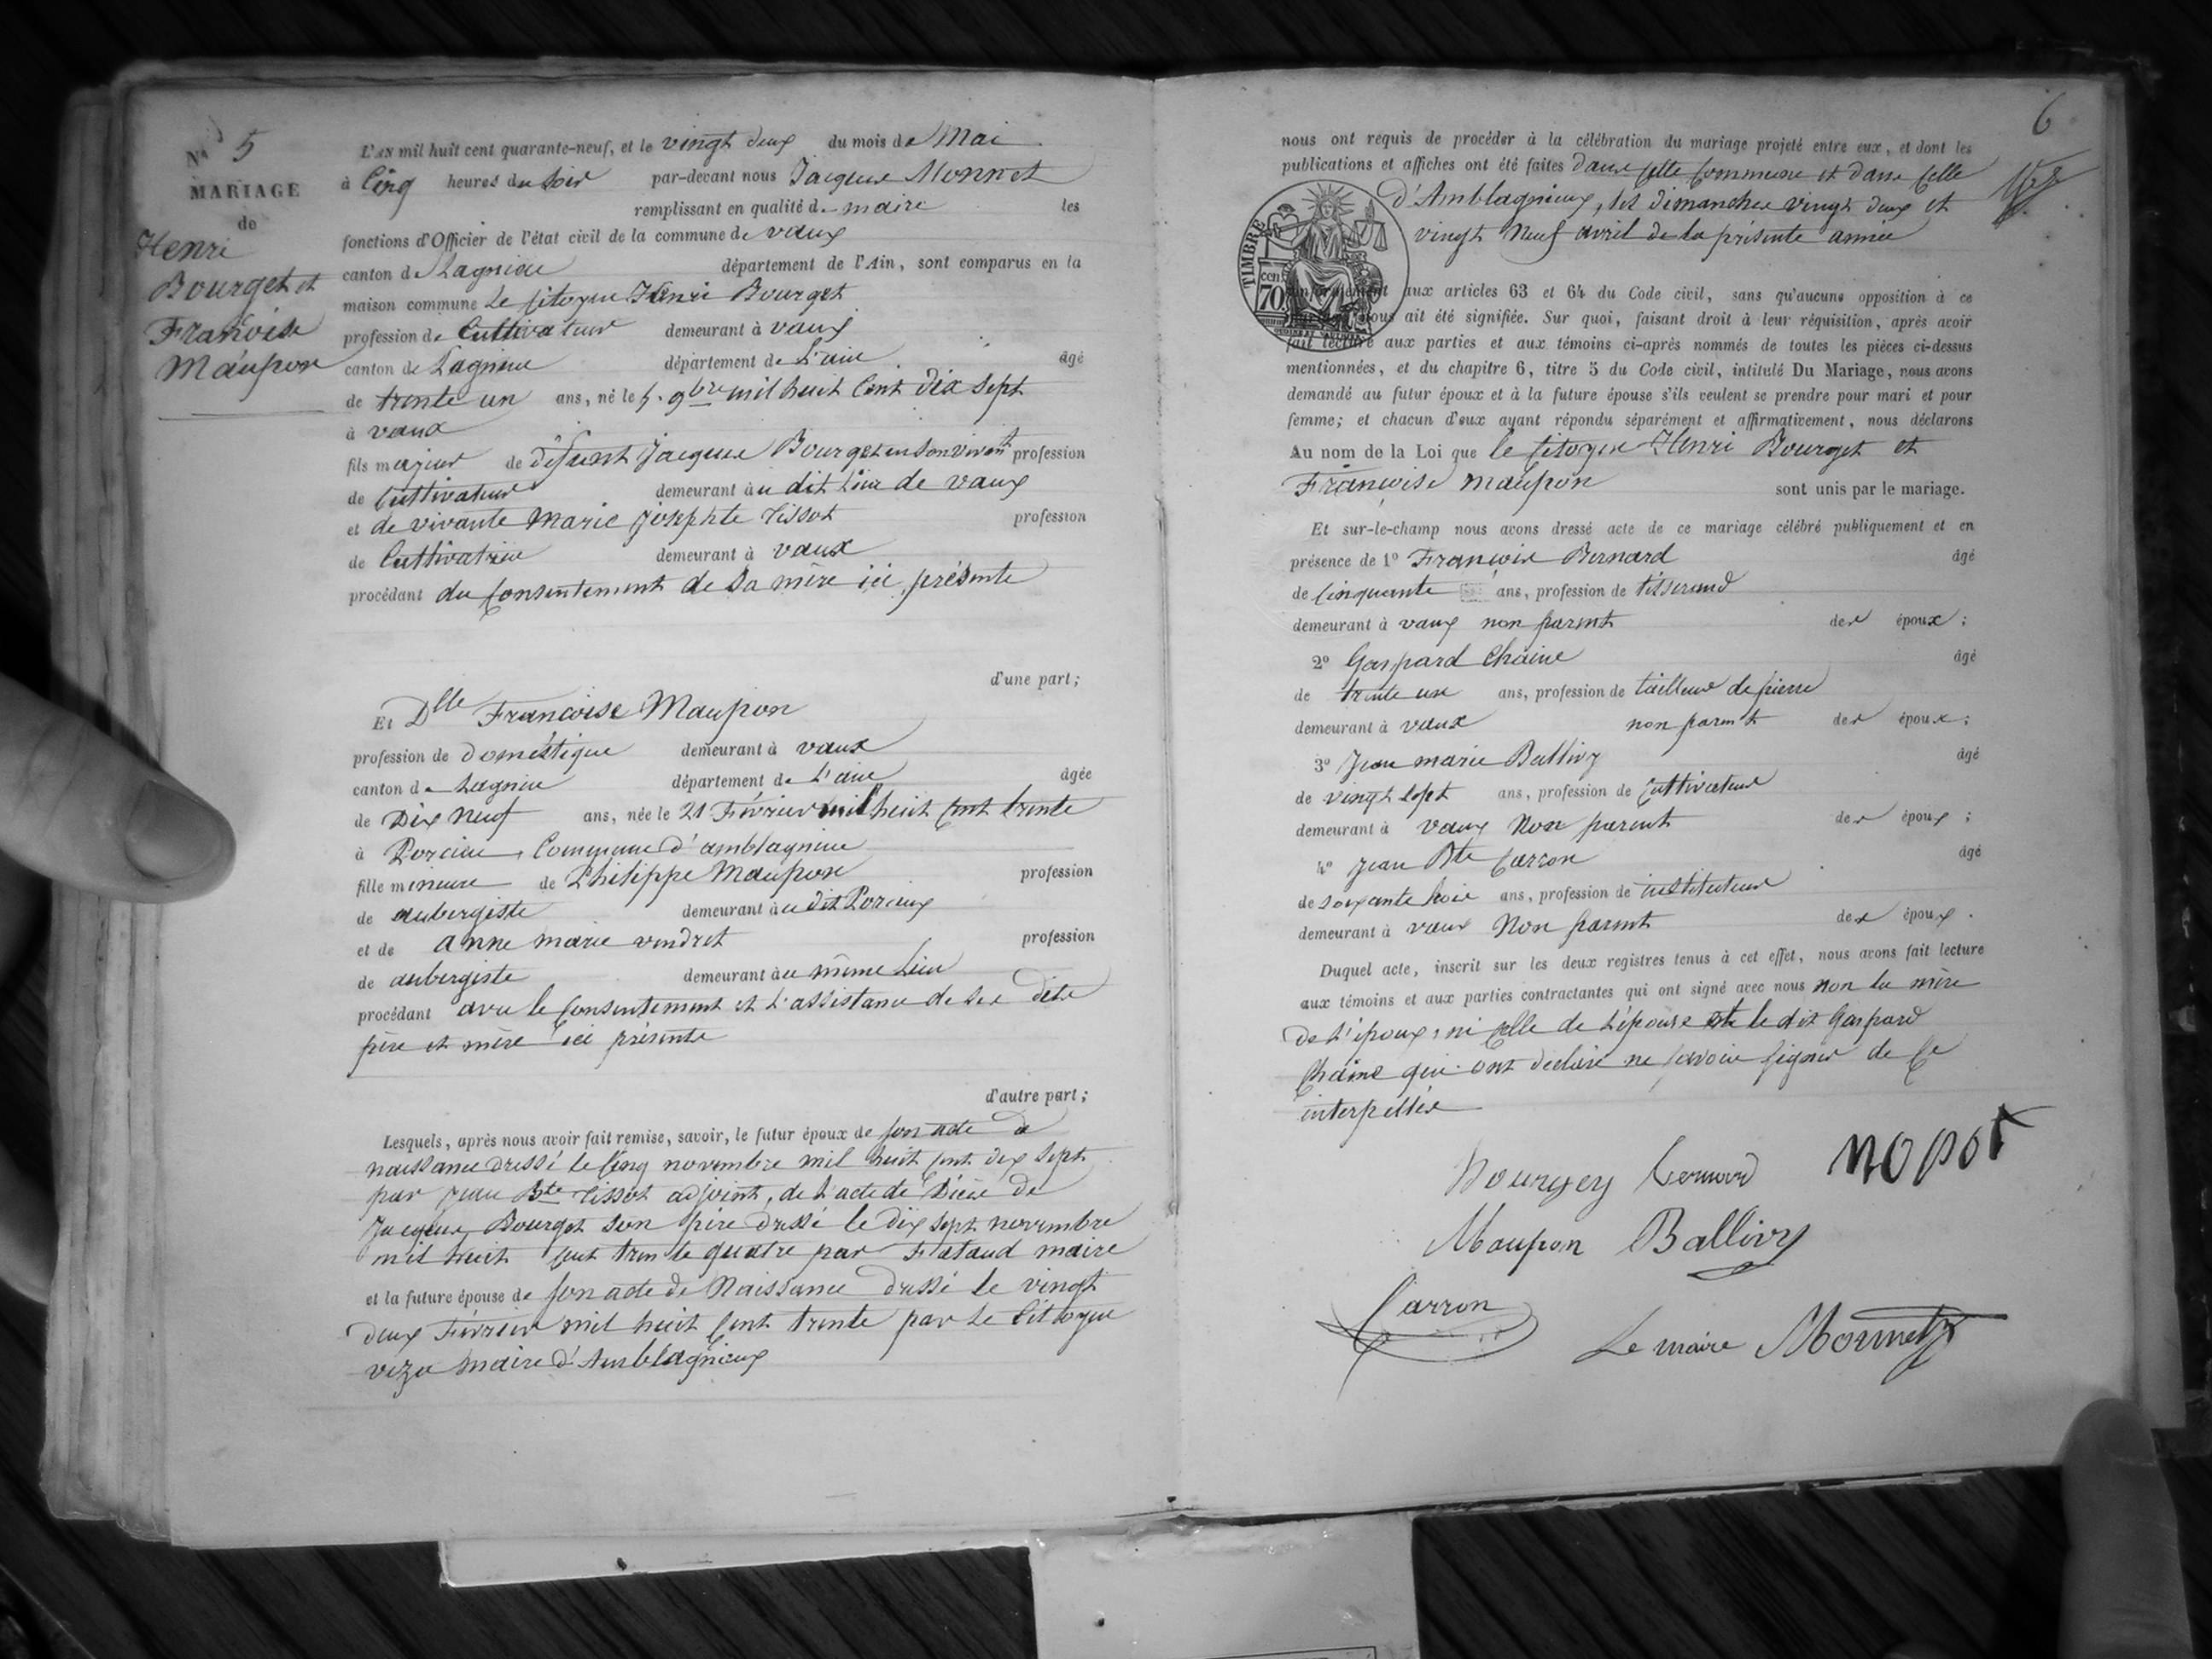 N° 5
MARIAGE
de
Henri
Bourget et
Francoise
Maupon
L'AN mil huit cent quarante-neuf, et le vingt deux du mois de Mai
à Cinq heures du soir par-devant nous Jacques Monnet
remplissant en qualité de maire les
fonctions d'Officier de l'état civil de la commune de vaux
canton de Lagnieu département de l'Ain, sont comparus en la
maison commune Le Citoyen Henri Bourget
profession de Cultivateur demeurant à vaux
canton de Lagnieu département de L'ain âgé
de trente un ans, né le 5. 9bre mil huit Cent dix sept
à vaux
fils majeur de défunt Jacques Bourget en son vivant profession
de Cultivateur demeurant au dit Lieu de vaux
et de vivante Marie Josephte Tissot profession
de Cultivatrice demeurant à vaux
procédant du Consentement de sa mère ici présente
d'une part;
Et Dlle Francoise Maupon
profession de doméstique demeurant à vaux
canton de Lagnieu département de L'ain âgée
de Dix neuf ans, née le 21 Février mil huit Cent trente
à Porcieu, Commune d'amblagnieu
fille mineure de Philippe Maupon profession
de aubergiste demeurant au dit Porcieux
et de anne marie vendret profession
de aubergiste demeurant au même Lieu
procédant avec le Consentement et L'assistance de ses dits
père et mère ici présents
d'autre part;
Lesquels, après nous avoir fait remise, savoir, le futur époux de son acte de
naissance dressé le Cinq novembre mil huit cent dix sept
par Jean Bte Tissot adjoint, de L'acte de Décès de
Jacques Bourget son père dressé le dix sept novembre
mil huit cent trente quatre par maire
et la future épouse de son acte de Naissance dressé le vingt
deux Février mil huit Cent trente par Le Citoyen
maire d'Amblagnieux
6
nous ont requis de procéder à la célébration du mariage projeté entre eux, et dont les
publications et affiches ont été faites dans Cette Commune et dans Celle
d'Amblagnieux, les dimanches vingt deux et
vingt Neuf avril de la présente année
TIMBRE
cent
70
aux articles 63 et 64 du Code civil, sans qu'aucune opposition à ce
nous ait été signifiée. Sur quoi, faisant droit à leur réquisition, après avoir
fait lecture aux parties et aux témoins ci-après nommés de toutes les pièces ci-dessus
mentionnées, et du chapitre 6, titre 5 du Code civil, intitulé Du Mariage, nous avons
demandé au futur époux et à la future épouse s'ils veulent se prendre pour mari et pour
femme; et chacun d'eux ayant répondu séparément et affirmativement, nous déclarons
Au nom de la Loi que le Citoyen Henri Bourget et
Françoise Maupon sont unis par le mariage.
Et sur-le-champ nous avons dressé acte de ce mariage célébré publiquement et en
présence de 1° François Bernard âgé
de Cinquante ans, profession de tisserand
demeurant à vaux non parent des époux;
2° Gaspard Chaine âgé
de trente un ans, profession de tailleur de pierre
demeurant à vaux non parent des époux;
3° Jean marie Ballivy âgé
de vingt sept ans, profession de Cultivateur
demeurant à vaux Non parent des époux;
4° Jean Bte Carron âgé
de soixante trois ans, profession de instituteur
demeurant à vaux Non parent des époux.
Duquel acte, inscrit sur les deux registres tenus à cet effet, nous avons fait lecture
aux témoins et aux parties contractantes qui ont signé avec nous non la mère
de L'époux, ni Celle de L'épouse et le dit Gaspard
Chaine qui ont declaré ne savoir signer de Ce
interpellés
Bourgey bernard
Maupon Ballivy
Carron
Le maire Monnet